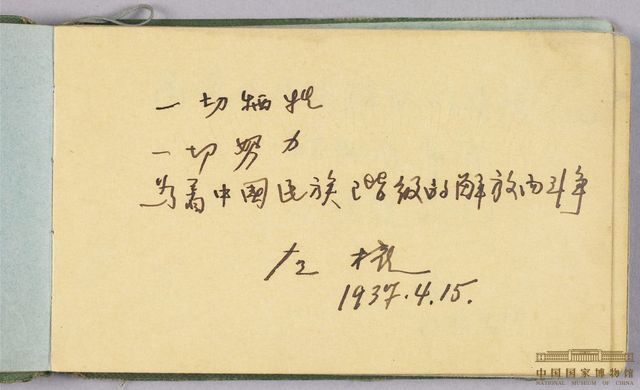 一切牺牲
一切努力
为着中國民族階級的解放而斗争
左權
1937.4.15.
中国国家博物馆
NATIONAL MUSEUM OF CHINA